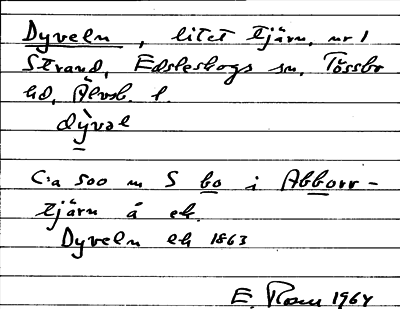 Dyveln, litet tjärn, nr 1
Strand, Edsleskogs sn, Tössbo
hd, Älvsb. l.
dỳ̲vəl
C:a 500 m S bo i Abborr-
tjärn å ek.
Dyveln ek 1863
E. Rosen 1964